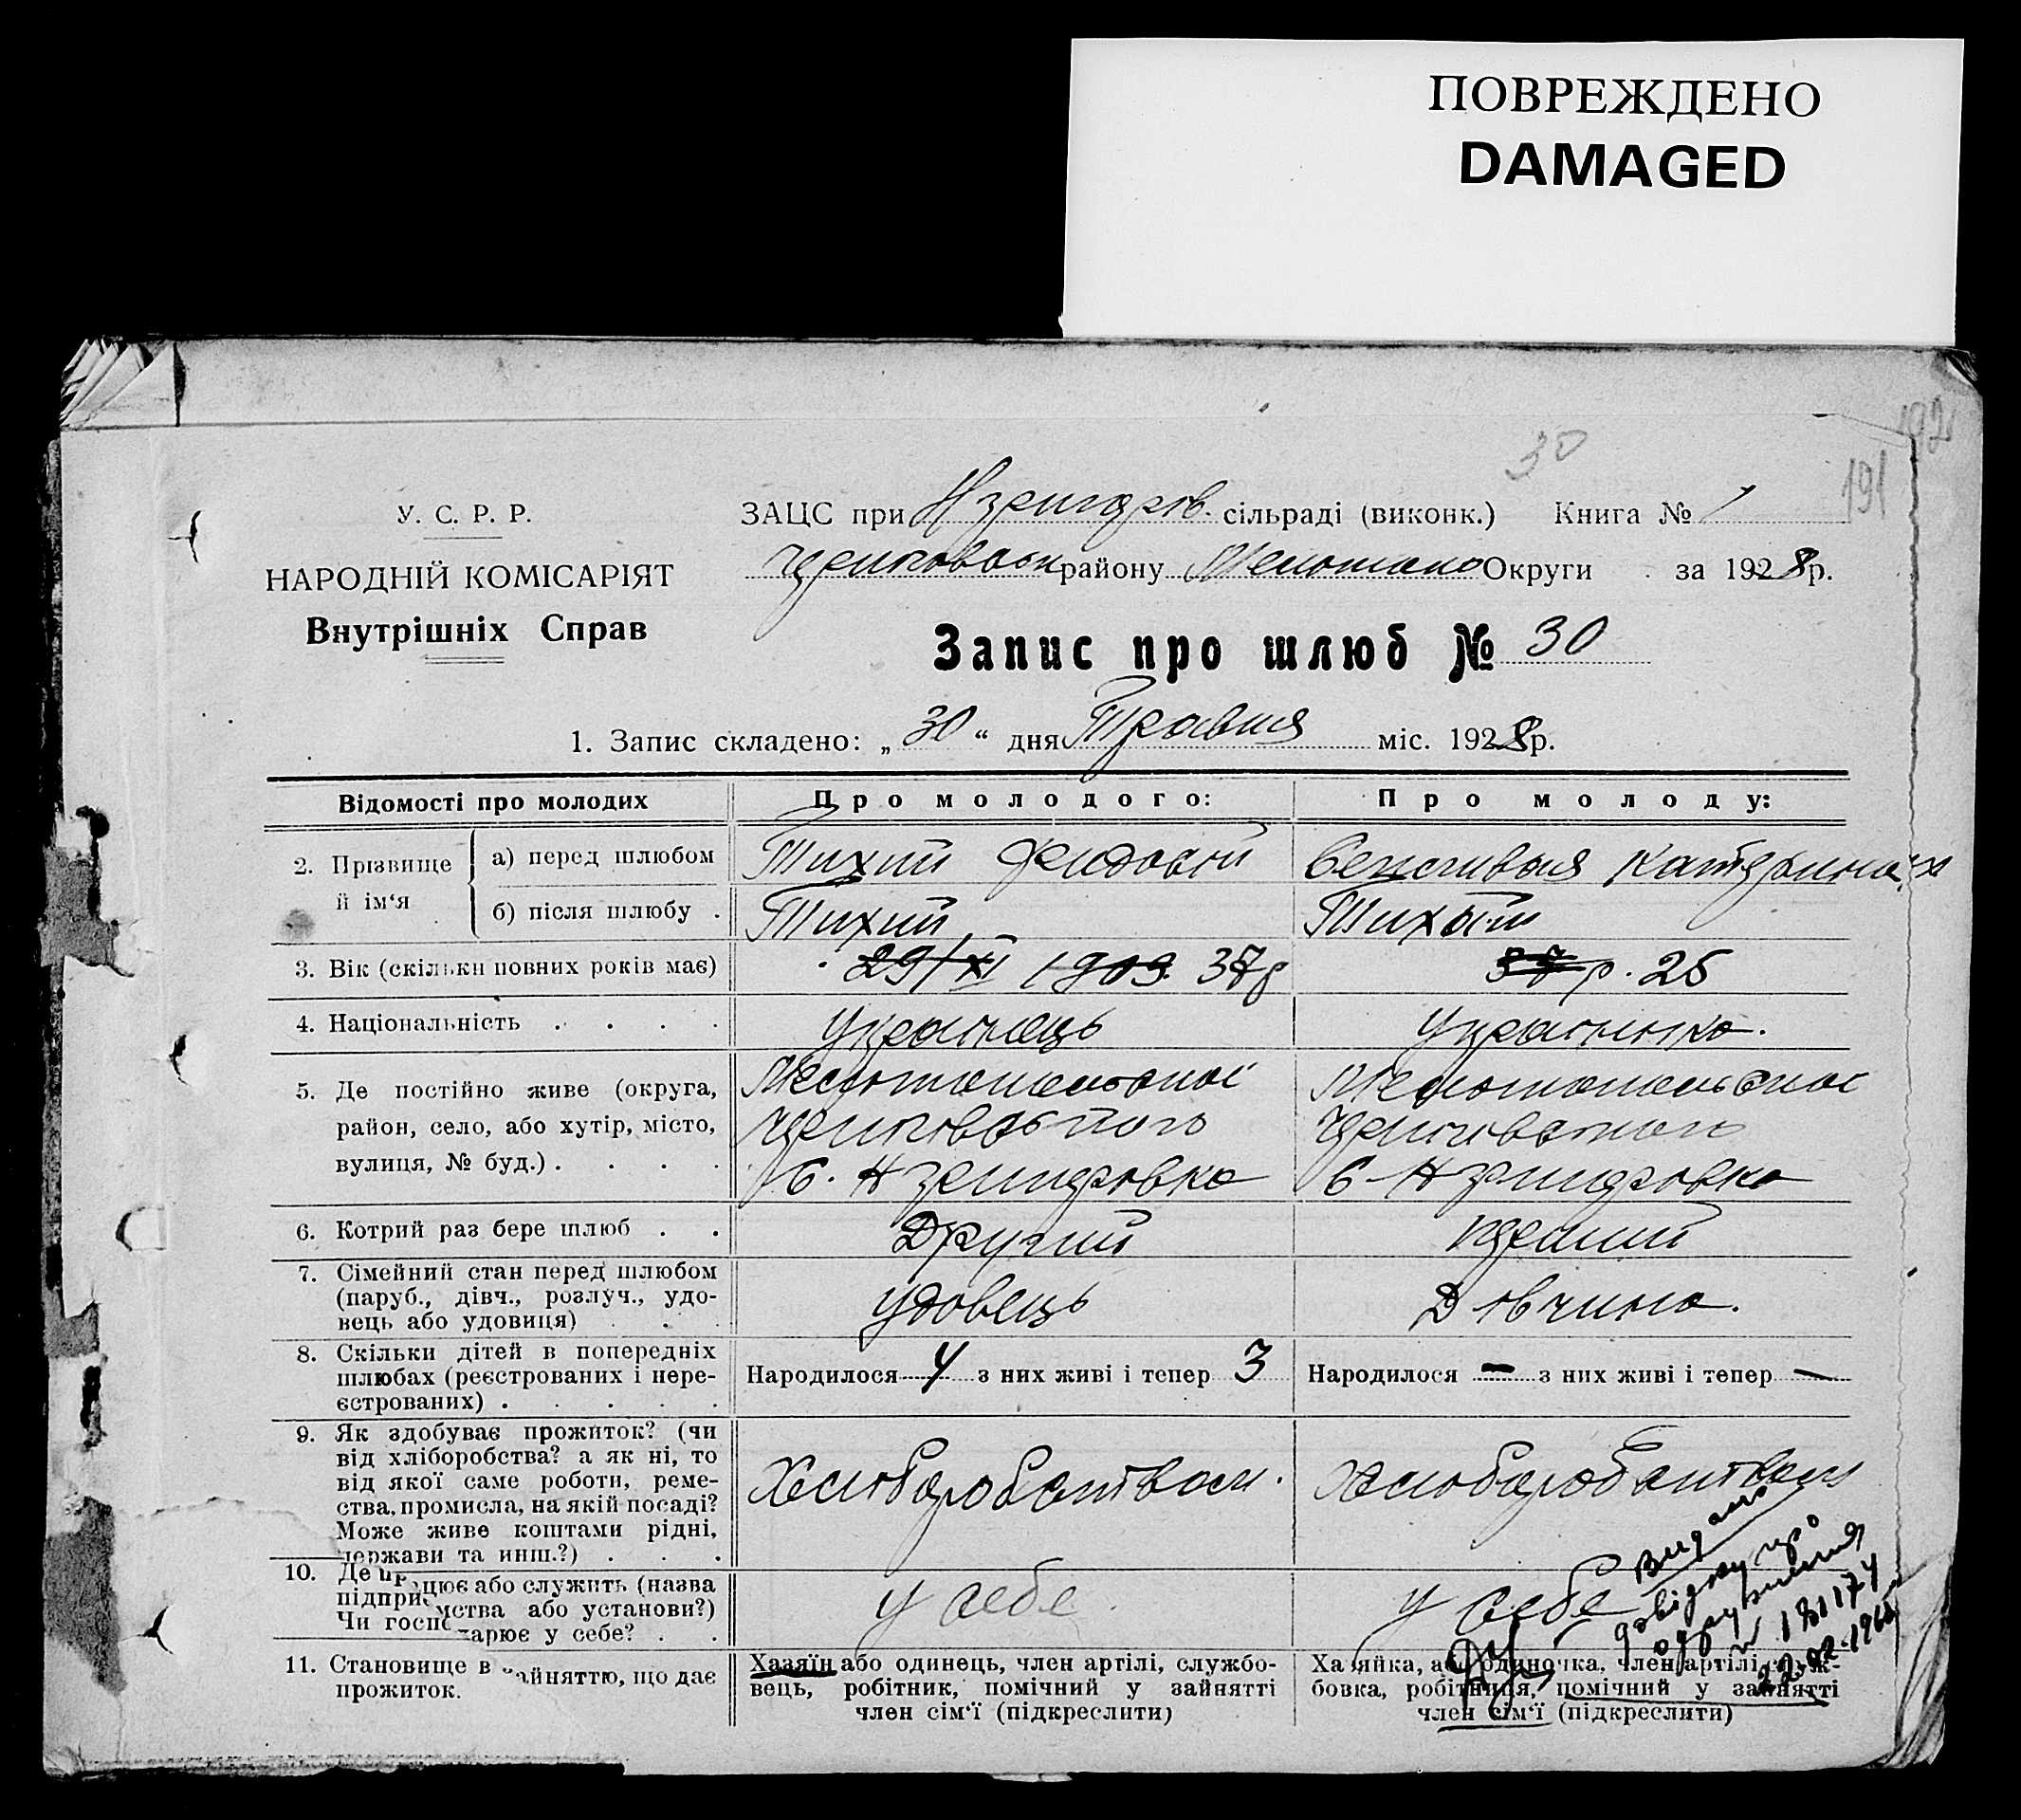 ПОВРЕЖДЕНО
DAMAGED
192
30
191
У. С. Р. Р.
НАРОДНІЙ КОМІСАРІЯТ
Внутрішніх Справ
ЗАЦС при сільраді (виконк.) Книга № 1
району Округи за 1928 р.
Запис про шлюб № 30
1. Запис складено: „ 30 “ дня Травня міс. 1928 р.
Відомості про молодих
Про молодого:
Про молоду:
2. Прізвище й ім‘я
а) перед шлюбом
Тихий
Катерина
б) після шлюбу .
Тихий
3. Вік (скільки повних років має)
29/XI 1903. 37 р
37 р. 25
4. Національність . . . .
Українець
Українка.
5. Де постійно живе (округа,
район, село, або хутір, місто,
вулиця, № буд.) . . . .
6. Котрий раз бере шлюб . .
Другий
7. Сімейний стан перед шлюбом
(паруб., дівч., розлуч., удо-
вець або удовиця) . .
удовець
Дівчина.
8. Скільки дітей в попередніх
шлюбах (реєстрованих і нере-
єстрованих) . . . . .
Народилося 4 з них живі і тепер 3
Народилося – з них живі і тепер –
9. Як здобуває прожиток? (чи
від хліборобства? а як ні, то
від якої саме роботи, реме-
ства, промисла, на якій посаді?
Може живе коштами рідні,
держави та инш.?) . . .
Хліборобством.
Хліборобством
10. Де працює або служить (назва
підприємства або установи?)
Чи господарює у себе? . .
у себе
у себе
Видано
довідку про
одруження
№ 181174
22-02-196
11. Становище в зайняттю, що дає
прожиток.
Хазяїн або одинець, член артілі, службо-
вець, робітник, помічний у зайнятті
член сім‘ї (підкреслити)
Хазяйка, або одиночка, член артілі, служ-
бовка, робітниця, помічний у зайнятті
член сім‘ї (підкреслити)